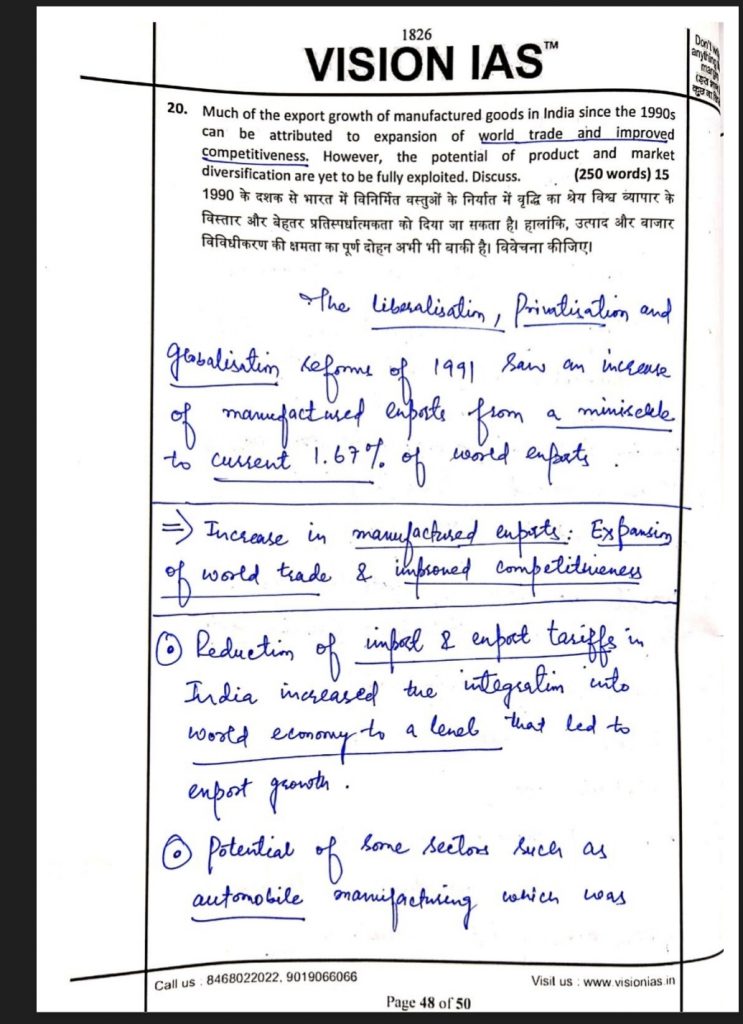 1826
VISION IAS™
Don't
anything
20. Much of the export growth of manufactured goods in India since the 1990s
can be attributed to expansion of world trade and improved
competitiveness. However, the potential of product and market
diversification are yet to be fully exploited. Discuss. (250 words) 15
1990 के दशक से भारत में विनिर्मित वस्तुओं के निर्यात में वृद्धि का श्रेय विश्व व्यापार के
विस्तार और बेहतर प्रतिस्पर्धात्मकता को दिया जा सकता है। हालांकि, उत्पाद और बाजार
विविधीकरण की क्षमता का पूर्ण दोहन अभी भी बाकी है। विवेचना कीजिए।
The Liberalisation, Privatisation and
Globalisation reforms of 1991 saw an increase
of manufactured exports from a
to current 1.67% of world exports.
⇒ Increase in manufactured exports: Expansion
of world trade & improved competitiveness
⊙ Reduction of import & export tariffs in
India increased the integration into
world economy to a level that led to
export growth.
⊙ Potential of some sectors such as
automobile manufacturing which was
Call us : 8468022022, 9019066066
Visit us : www.visionias.in
Page 48 of 50